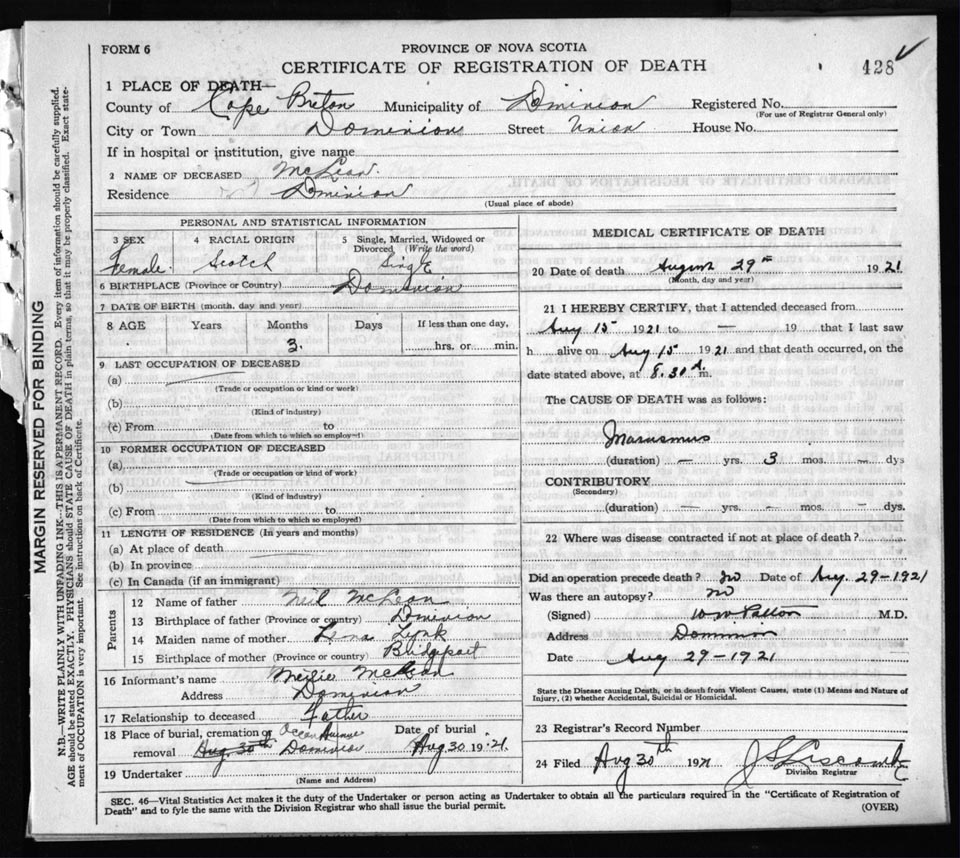 FORM 6
PROVINCE OF NOVA SCOTIA
CERTIFICATE OF REGISTRATION OF DEATH
428
1 PLACE OF DEATH—
County of Cape Breton Municipality of Dominion Registered No.
(For use of Registrar General only)
City or Town Dominion Street Union House No.
If in hospital or institution, give name
2 NAME OF DECEASED McLean.
Residence Dominion
(Usual place of abode)
PERSONAL AND STATISTICAL INFORMATION
3 SEX 4 RACIAL ORIGIN 5 Single, Married, Widowed or Divorced (Write the word)
Female. Scotch Single
6 BIRTHPLACE (Province or Country) Dominion
7 DATE OF BIRTH (month, day and year)
8 AGE Years Months Days If less than one day,
3. hrs. or min.
9 LAST OCCUPATION OF DECEASED
(a)
(Trade or occupation or kind or work)
(b)
(Kind of industry)
(c) From to
(Date from which to which so employed)
10 FORMER OCCUPATION OF DECEASED
(a)
(Trade or occupation or kind of work)
(b)
(Kind of industry)
(c) From to
(Date from which to which so employed)
11 LENGTH OF RESIDENCE (In years and months)
(a) At place of death
(b) In province
(c) In Canada (if an immigrant)
Parents
12 Name of father Neil McLean
13 Birthplace of father (Province or country) Dominion
14 Maiden name of mother Lena Lynk
15 Birthplace of mother (Province or country) Bridgeport
16 Informant's name McLean
Address Dominion
17 Relationship to deceased Father
18 Place of burial, cremation or Ocean Avenue Date of burial
removal Aug 30th Dominion Aug 30 1921.
19 Undertaker
(Name and Address)
MEDICAL CERTIFICATE OF DEATH
20 Date of death August 29th 1921
(Month, day and year)
21 I HEREBY CERTIFY, that I attended deceased from
Aug 15 1921 to — 19 that I last saw
h alive on Aug 15 1921 and that death occurred, on the
date stated above, at 8.30 A. m.
The CAUSE OF DEATH was as follows:
Marasmus
(duration) — yrs. 3 mos. — dys
CONTRIBUTORY
(Secondary)
(duration) — yrs. — mos. — dys.
22 Where was disease contracted if not at place of death?
Did an operation precede death? No Date of Aug. 29-1921
Was there an autopsy? no
(Signed) W W Patton M.D.
Address Dominion
Date Aug 29-1921
State the Disease causing Death, or in death from Violent Causes, state (1) Means and Nature of
Injury, (2) whether Accidental, Suicidal or Homicidal.
23 Registrar's Record Number
24 Filed Aug 30th 1921 J S Liscombe
Division Registrar
SEC. 46—Vital Statistics Act makes it the duty of the Undertaker or person acting as Undertaker to obtain all the particulars required in the "Certificate of Registration of
Death" and to fyle the same with the Division Registrar who shall issue the burial permit.
(OVER)
MARGIN RESERVED FOR BINDING
N.B.—WRITE PLAINLY WITH UNFADING INK—THIS IS A PERMANENT RECORD. Every item of information should be carefully supplied.
AGE should be stated EXACTLY. PHYSICIANS should STATE CAUSE OF DEATH in plain terms, so that it may be properly classified. Exact state-
ment of OCCUPATION is very important. See instructions on back of Certificate.